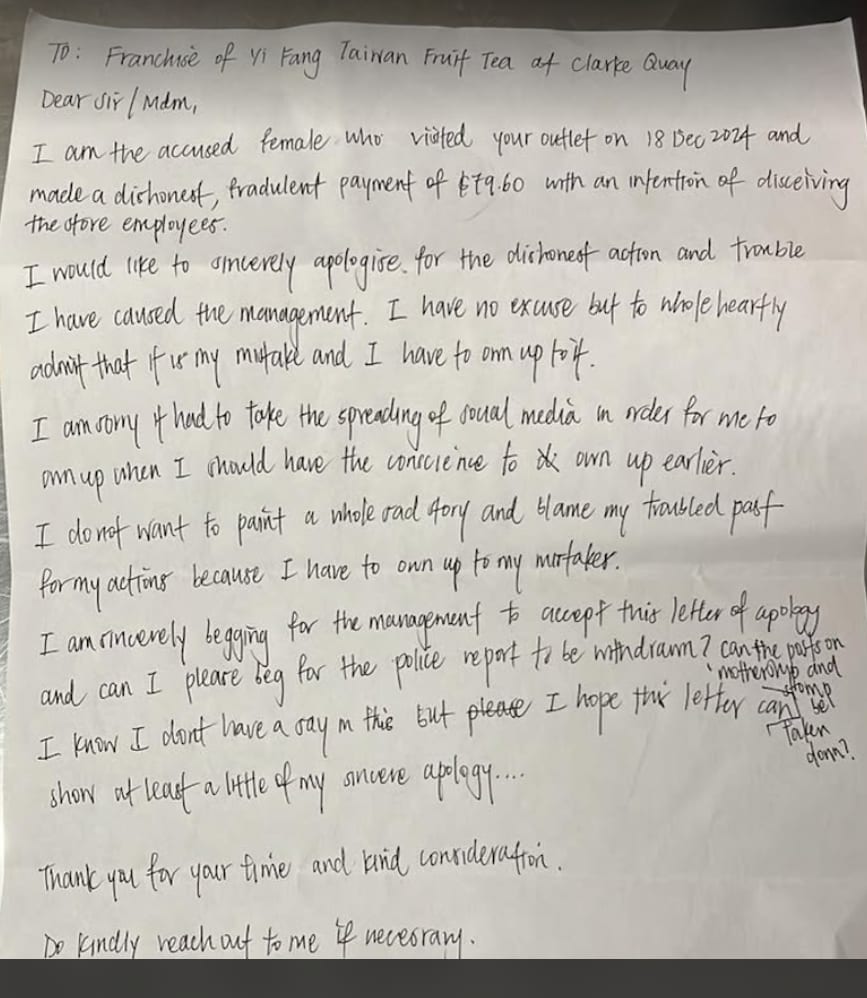 To: Franchise of Yi Fang Taiwan Fruit Tea at Clarke Quay
Dear Sir/Mdm,
I am the accused female who visited your outlet on 18 Dec 2024 and
made a dishonest, fradulent payment of $79.60 with an intention of disceiving
the store employees.
I would like to sincerely apologise for the dishonest action and trouble
I have caused the management. I have no excuse but to whole heartly
admit that it is my mistake and I have to own up to it.
I am sorry it had to take the spreading of social media in order for me to
own up when I should have the conscience to own up earlier.
I do not want to paint a whole sad story and blame my troubled past
for my actions because I have to own up to my mistakes.
I am sincerely begging for the management to accept this letter of apology
and can I please beg for the police report to be withdrawn? can the posts on
mothership and
stomp
I know I dont have a say in this but please I hope this letter can
be
Taken
down?
show at least a little of my sincere apology....
Thank you for your time and kind consideration.
Do kindly reach out to me if necesrary.